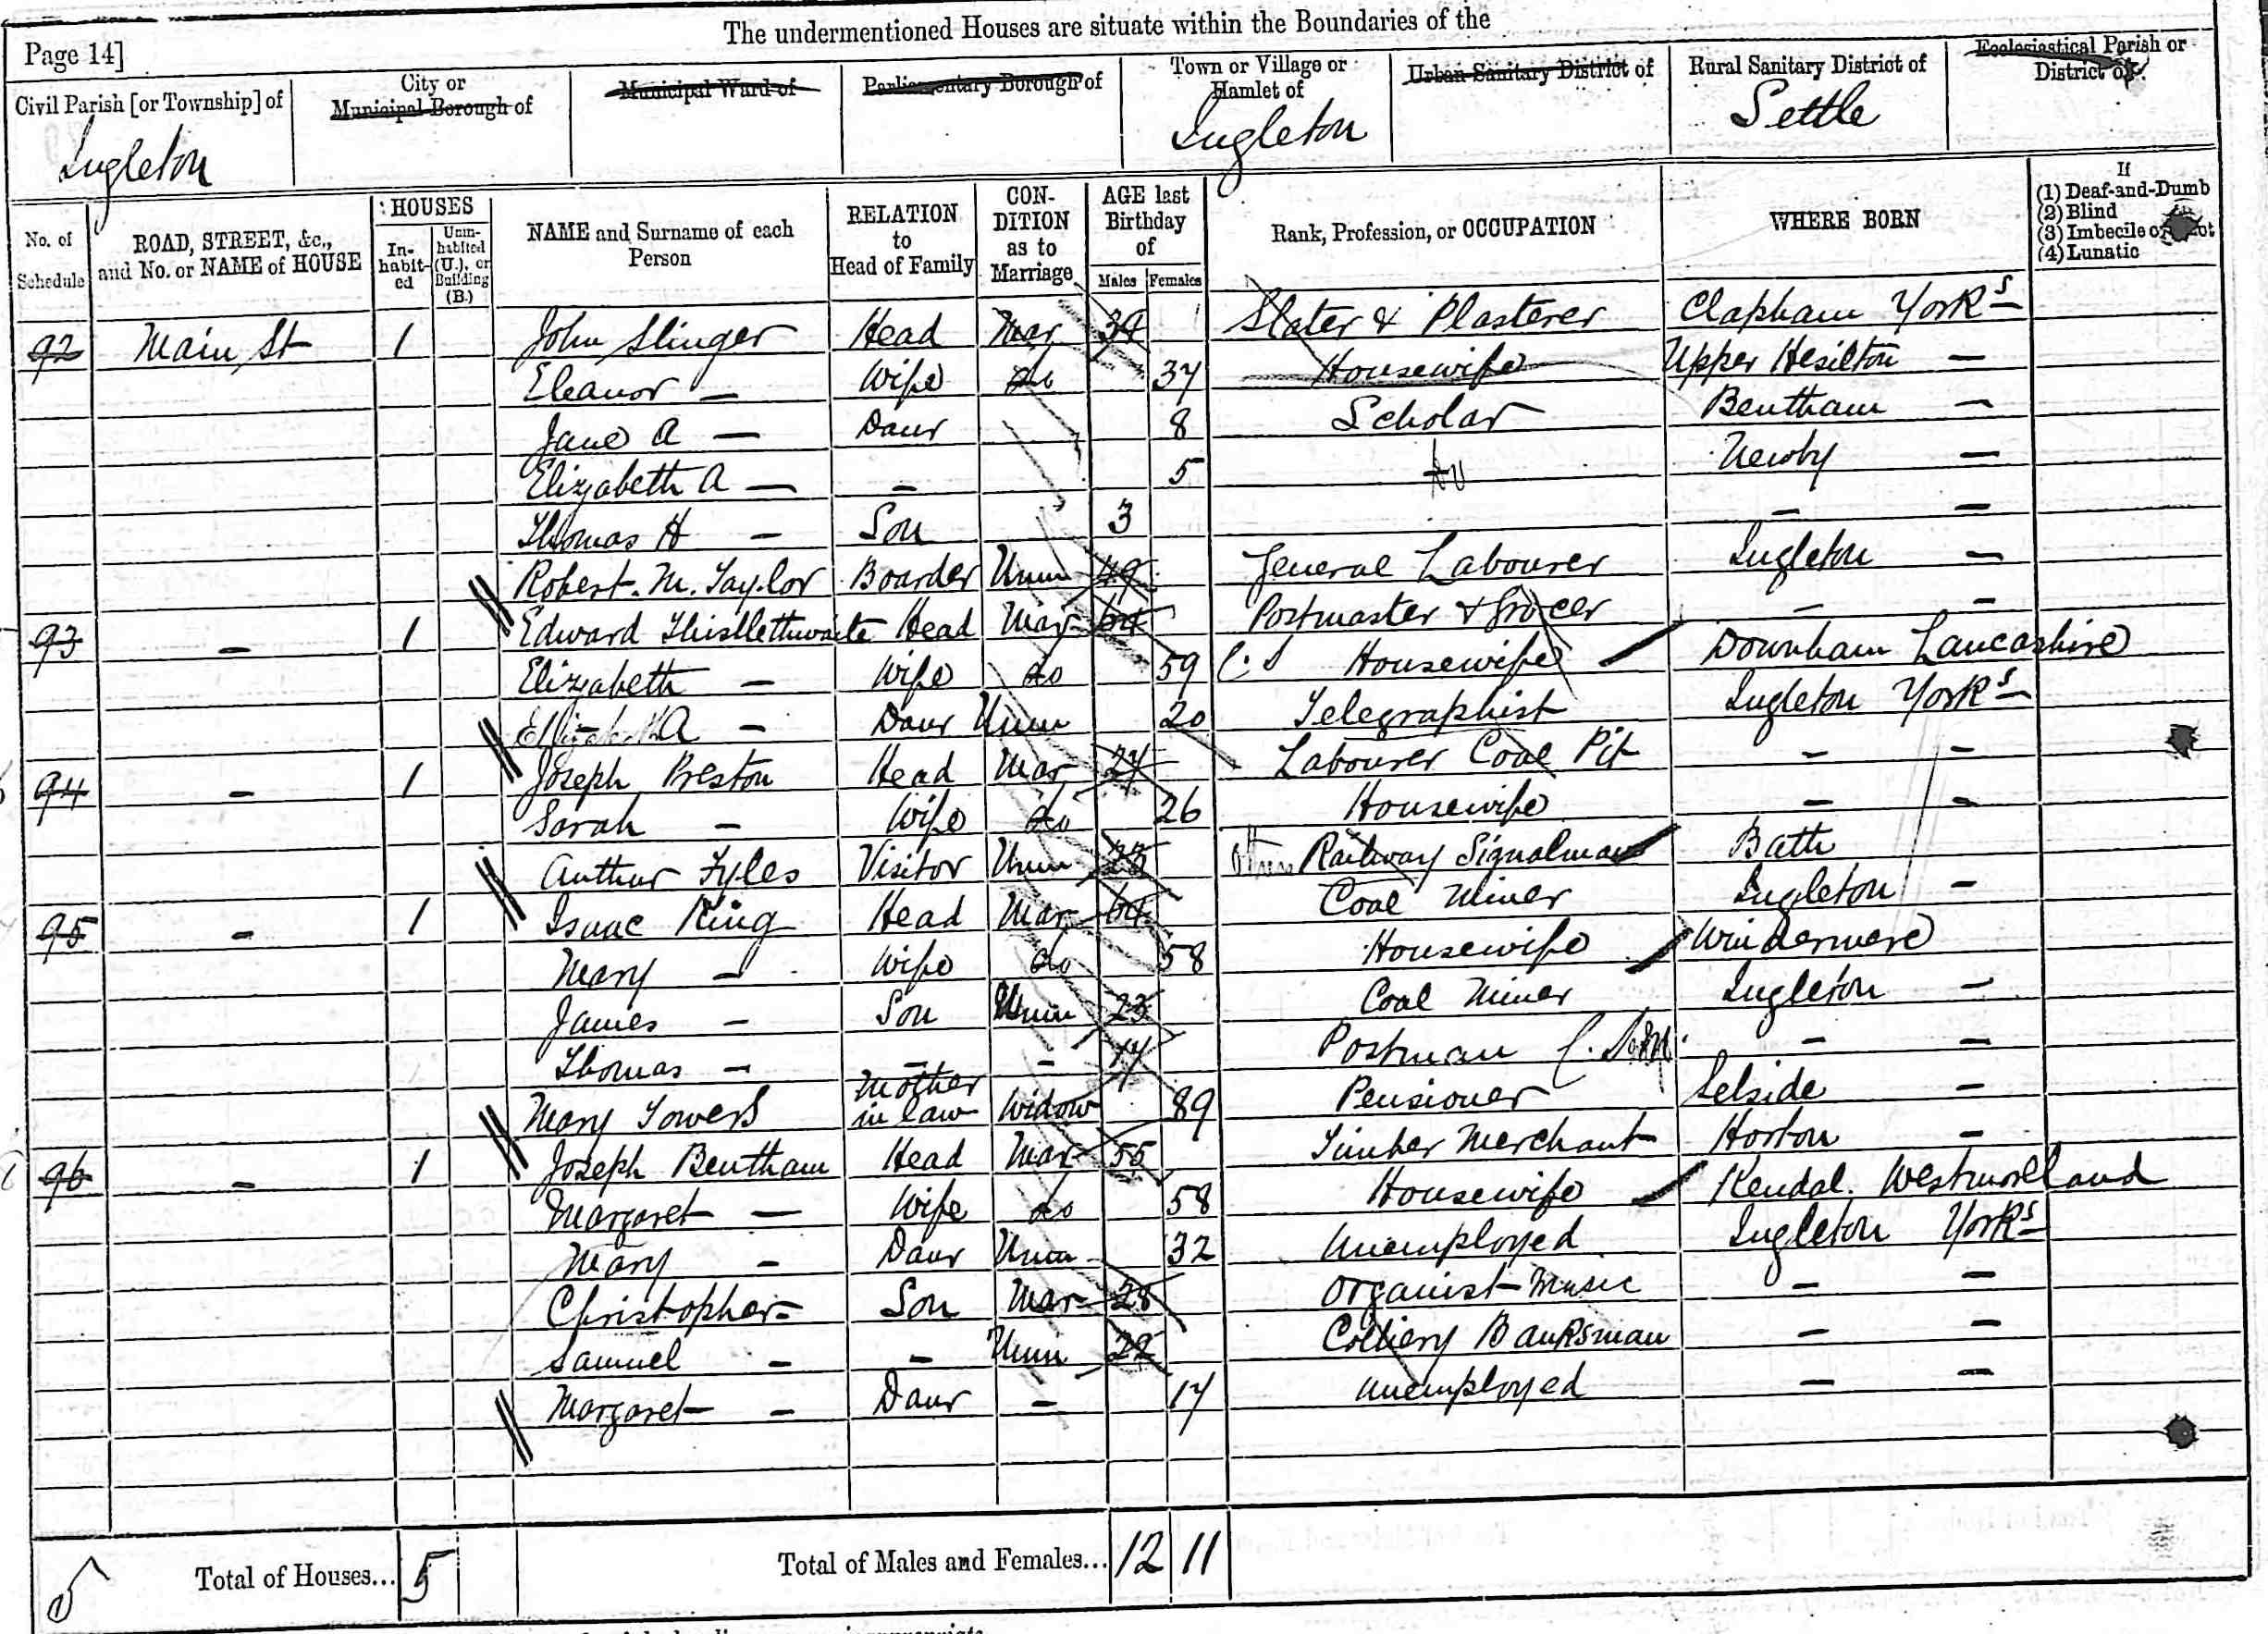 The undermentioned Houses are situate within the Boundaries of the
Page 14]
Civil Parish [or Township] of
Ingleton
City or
Municipal Borough of
Municipal Ward of
Parliamentary Borough of
Town or Village or
Hamlet of
Ingleton
Urban Sanitary District of
Rural Sanitary District of
Settle
Ecclesiastical Parish or
District of
No. of
Schedule
ROAD, STREET, &c.,
and No. or NAME of HOUSE
HOUSES
In-
habit-
ed
Unin-
habited
(U.), or
Building
(B.)
NAME and Surname of each
Person
RELATION
to
Head of Family
CON-
DITION
as to
Marriage
AGE last
Birthday
of
Males Females
Rank, Profession, or OCCUPATION
WHERE BORN
If
(1) Deaf-and-Dumb
(2) Blind
(3) Imbecile or Idiot
(4) Lunatic
92 Main St 1 John Slinger Head Mar 39 Slater & Plasterer Clapham Yorks
Eleanor — Wife do 37 Housewife Upper Hesilton —
Jane A — Daur 8 Scholar Bentham —
Elizabeth A — — 5 do Newby —
Thomas H — Son 3 — —
Robert. M. Taylor Boarder Unm 49 General Labourer Ingleton —
93 — 1 Edward Thistlethwaite Head Mar 64 Postmaster & Grocer — —
Elizabeth — Wife do 59 C. S Housewife Downham Lancashire
Elizabeth A — Daur Unm 20 Telegraphist Ingleton Yorks
94 — 1 Joseph Preston Head Mar 27 Labourer Coal Pit — —
Sarah — Wife do 26 Housewife — —
Author Fyles Visitor Unm 23 Railway Signalman Bath
95 — 1 Isaac King Head Mar 64 Coal Miner Ingleton —
Mary — Wife do 58 Housewife Windermere
James — Son Unm 23 Coal Miner Ingleton —
Thomas — — — 17 Postman — —
Mary Towers Mother in law Widow 89 Pensioner Selside —
96 — 1 Joseph Bentham Head Mar 55 Timber Merchant Horton —
Margaret — Wife do 58 Housewife Kendal. Westmoreland
Mary — Daur Unm 32 Unemployed Ingleton Yorks
Christopher — Son Mar 28 Organist Music — —
Samuel — — Unm 22 Colliery Banksman — —
Margaret — Daur — 17 Unemployed — —
Total of Houses... 5
Total of Males and Females... 12 11